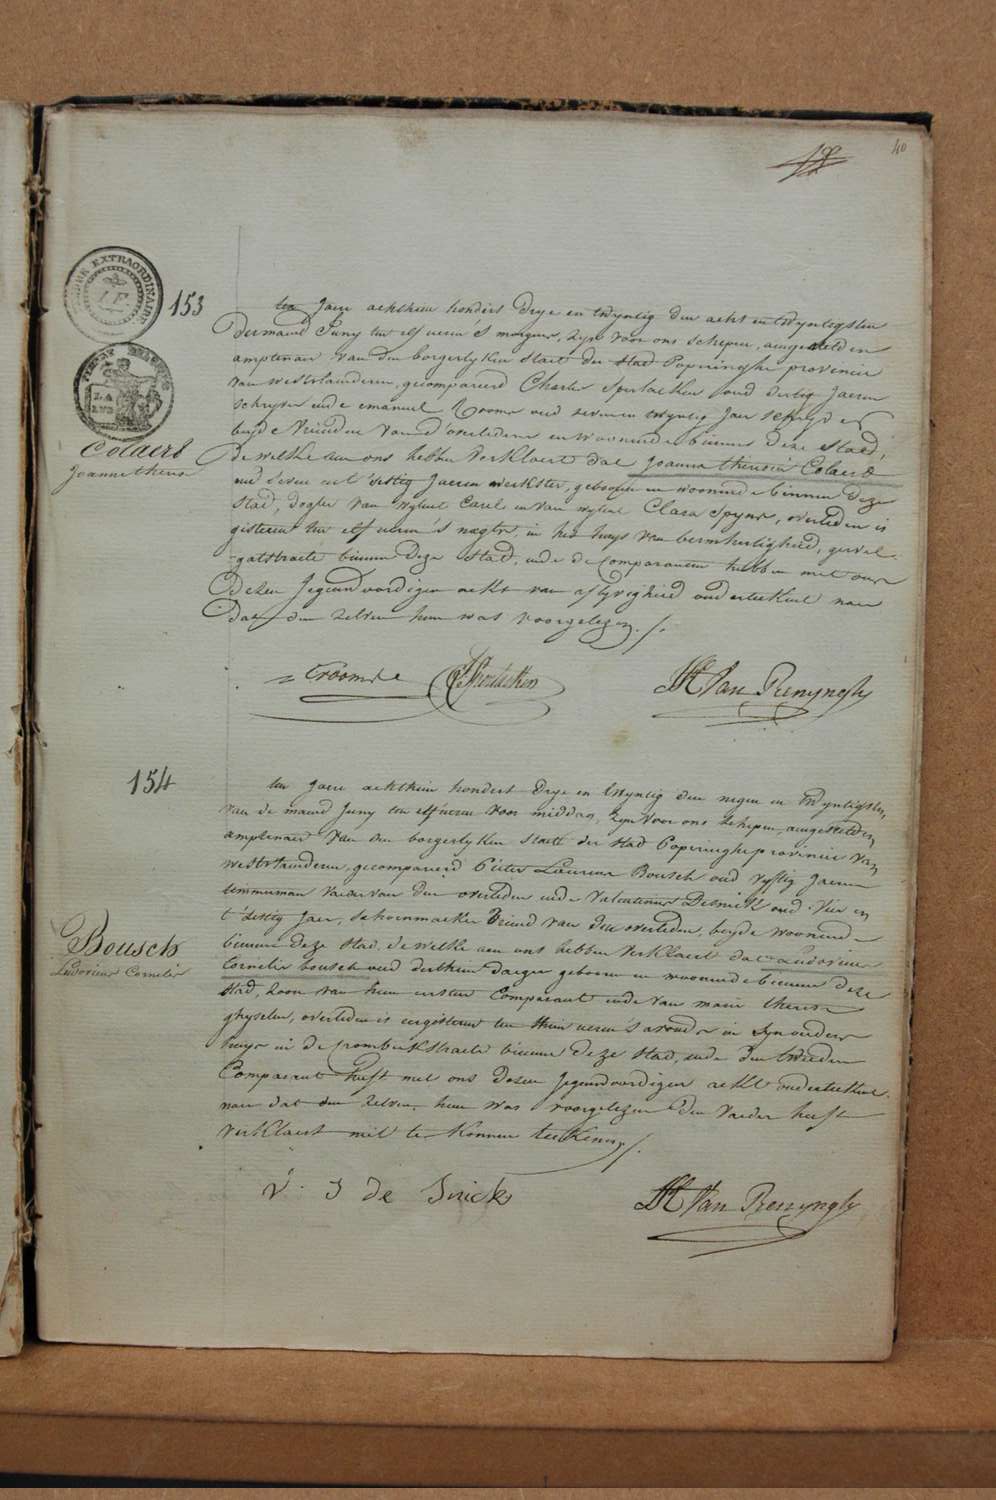 40
153
ten Jaere achthien hondert drye en twyntig den acht en twyntigsten
der maend Juny ten elf ueren s morgens, zyn voor ons schepen, aengestelden
amptenaer van den borgerlyken staet der stad Poperinghe provencie
van westvlaenderen, gecompareerd Charles oud dertig Jaeren
schryver ende emanuel Rooms oud seven en twyntig Jaer
beyde vrienden van d'overledene en woonende binnen deze stad,
dewelke aen ons hebben verklaert dat Joanna theresia Colaert
oud seven en t'sestig Jaeren werkster, geboren en woonende binnen deze
stad, dogter van wylent Carel en van wylent Clara Spyns, overleden is
gisteren ten elf ueren 's nagts, in het huys van bermhertigheid, gervel-
-gatstraete binnen deze stad, ende de comparanten hebben met ons
dezen Jegenwoordigen acte van aflyvigheid onderteekent naer
dat den zelven hun was voorgelezen ./.
Colaert
Joanna theresia
TIMBRE EXTRAORDINAIRE
Van Renynghe
154
ten Jaere achthien hondert drye en twyntig den negen en twyntigsten
van de maend Juny ten elf ueren voor middag, zyn voor ons schepen, aengestelden
amptenaer van den borgerlyken staet der stad Poperinghe provincie van
westvlaenderen, gecompareerd Pieter Laurens Bousch oud vyftig Jaeren
temmerman vader van den overleden ende Valentinus Desnick oud vier en
t'sestig Jaer, schoenmaeker vriend van den overleden, beyde woonende
binnen deze stad, dewelke aen ons hebben verklaert dat Ludovicus
Cornelis bousch oud derthien daegen geboren en woonende binnen deze
stad, zoon van hun eersten Comparant ende van marie therese
ghyselen, overleden is eergisteren ten thien ueren 's avonds in zyn ouders
huys in de Crombekstraete binnen deze stad, ende den tweeden
Comparant heeft met ons dezen Jegenwoordigen acte onderteekent
naer dat den zelven hun was voorgelezen den vaeder heeft
verklaert niet te konnen teekenen ./.
Bousch
Ludovicus Cornelis
V. J de Snick
Van Renynghe